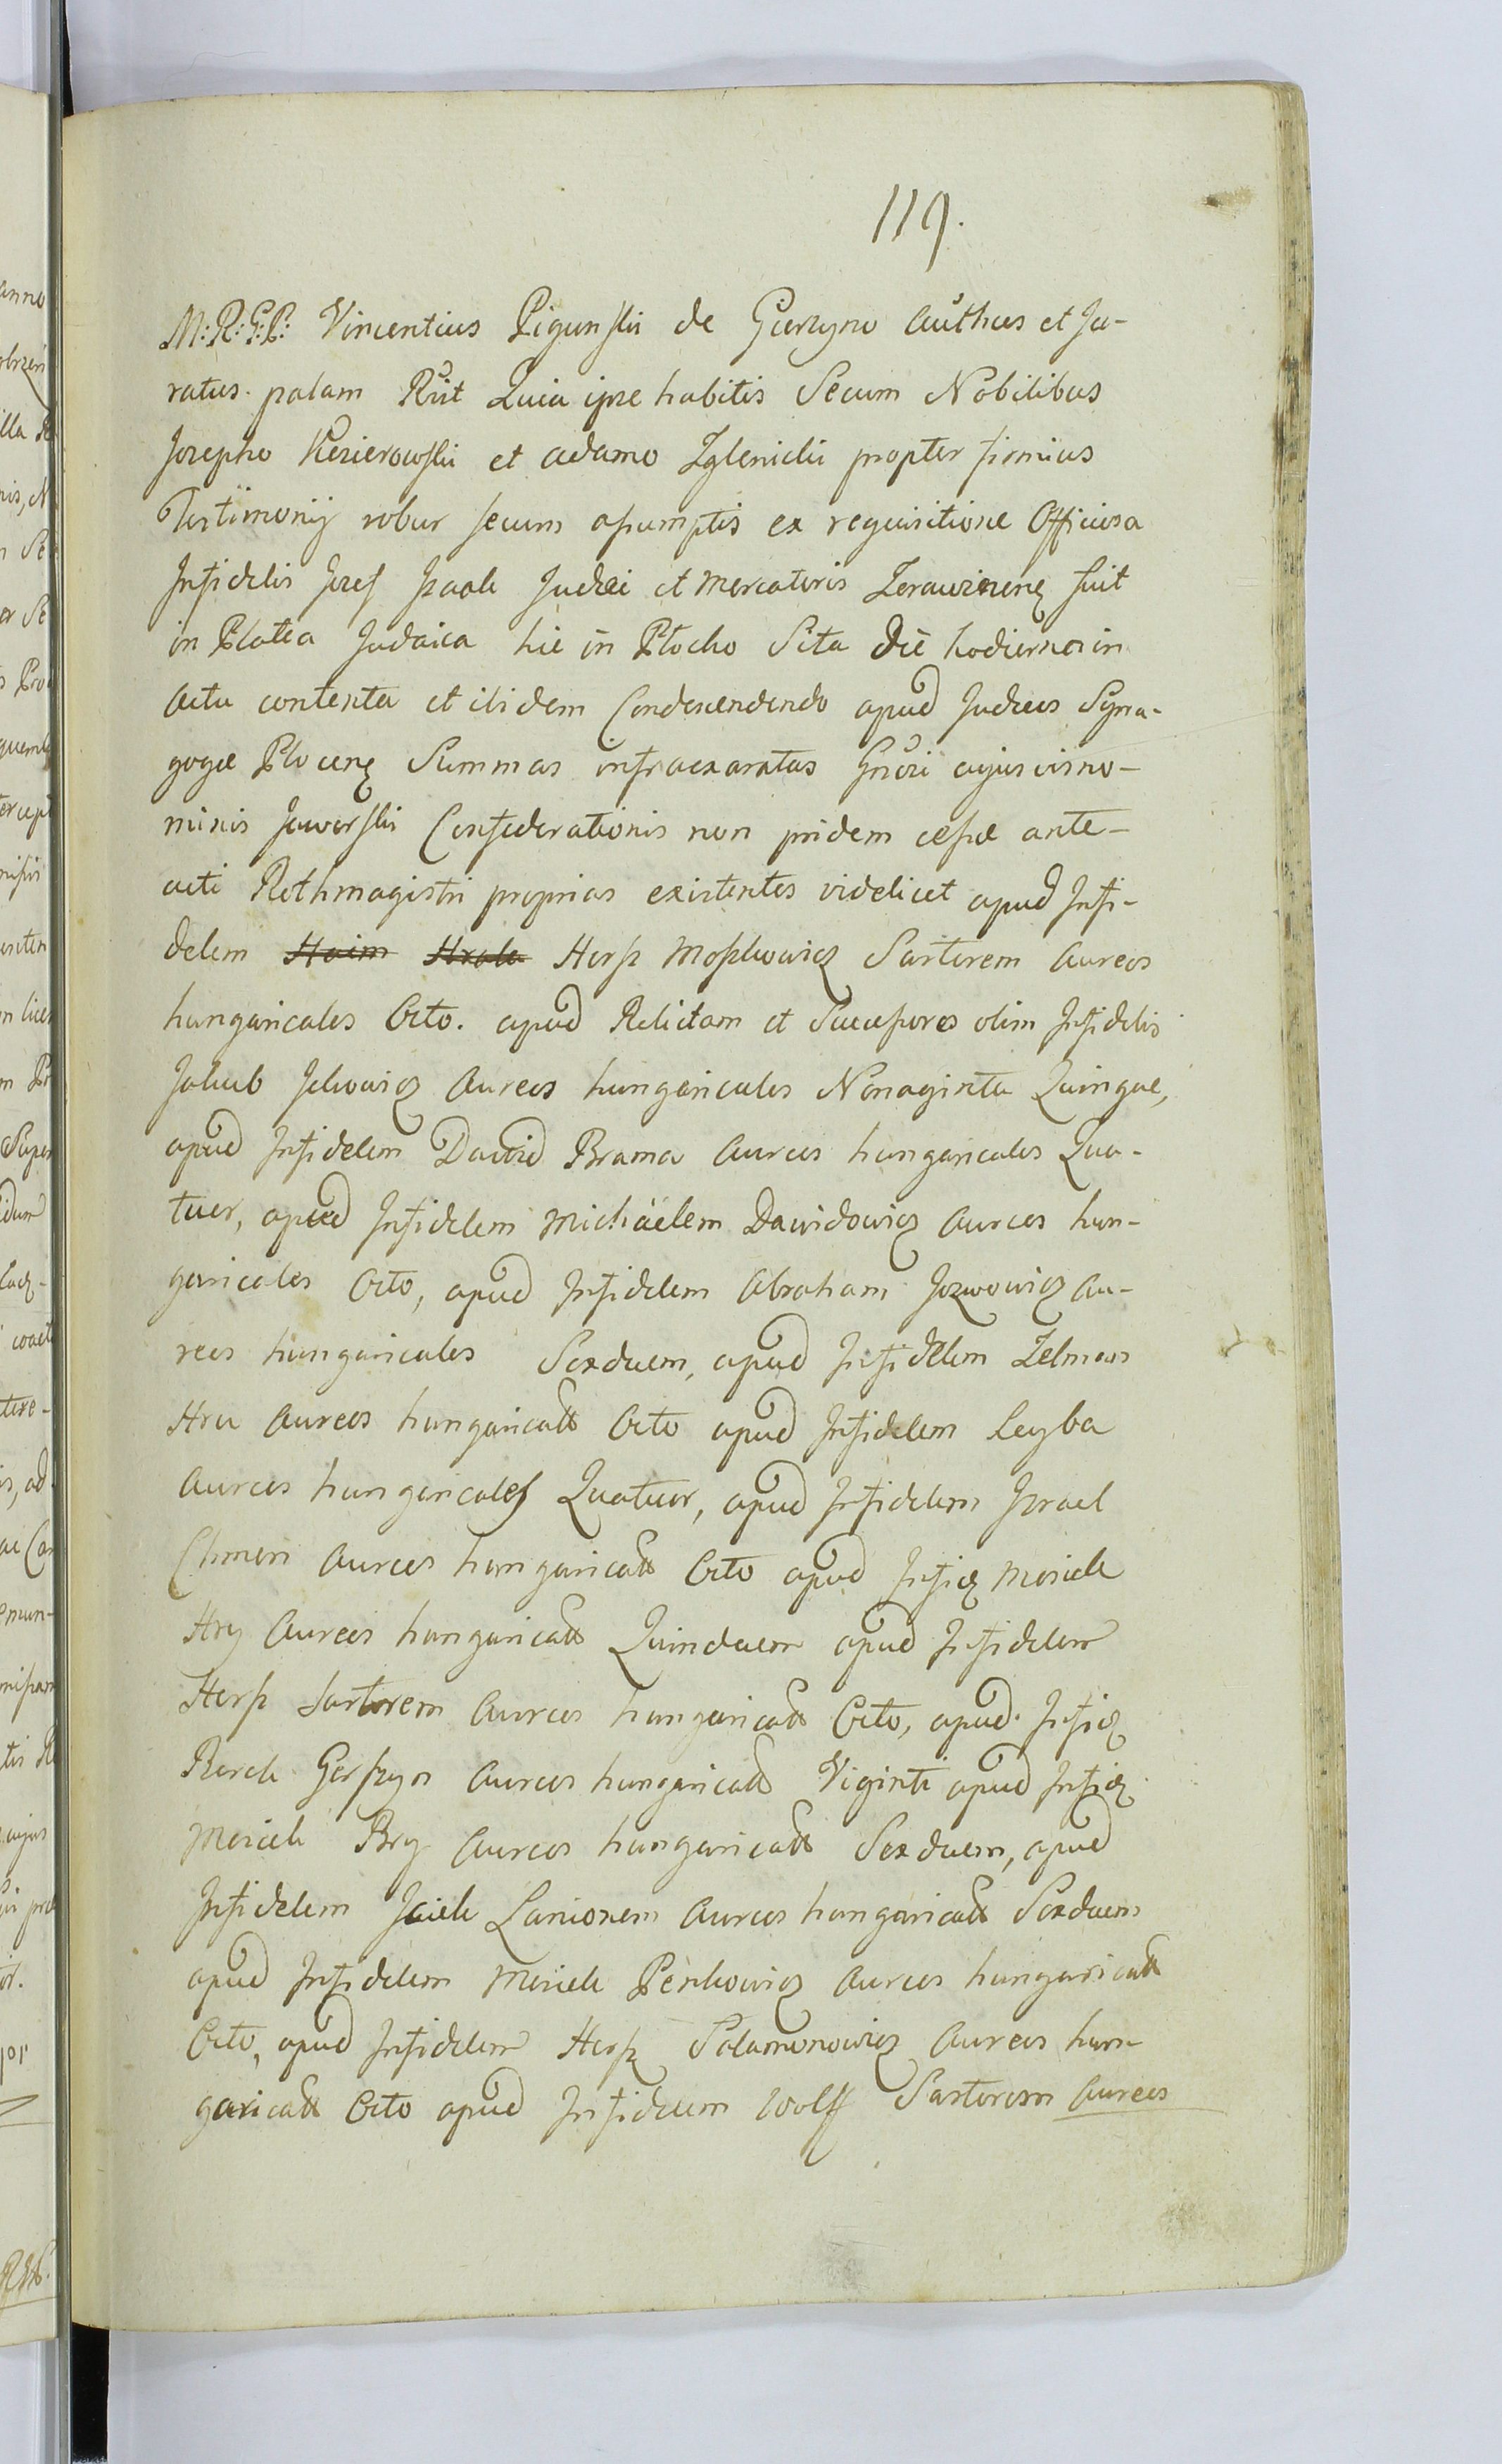 119.
M: R: G: P: Vincentius Pigunski de Gierzyno Authus et Ju-
ratus palam Rūt Quia ipse habitis Secum Nobilibus
Josepho Kezierowski et Adamo Zglenicki propter firmius
Testimonij robur secum assumptis ex requisitione Officiosa
Infidelis Josef Jzaak Judæi et Mercatoris Zerawinenẹ fuit
in Platea Judaica hic in Plocko Sita die hodierna in
Actu contenta et ibidem Condescendendo apud Judæos Syna-
gogæ Plocenẹ Summas infraexaratas Gnōsi cujusvis no-
minis Jaworski Confederationis non pridem cessæ ante-
acti Rothmagistri proprias existentes videlicet apud Infi-
delem Haim Herß Moszkowicz Sartorem Aureos
hungaricales Octo. apud Relictam et Successores olim Infidelis
Jakub Jckowicz Aureos hungaricales Nonaginta Quinque,
apud Infidelem Dawid Brama Aureos hungaricales Qua-
tuor, apud Infidelem Michaelem Dawidowicz Aureos hun-
garicales Octo, apud Infidelem Abraham Jozwowicz Au-
reos hungaricales Sexdecem, apud Infidelem Zelman
Hru Aureos hungaricall Octo apud Infidelem Leyba
Aureos hungaricales Quatuor, apud Infidelem Jzrael
Aureos hungaricall Octo apud Infiẹ Mosiek
Hry Aureos hungaricall Quindecem apud Infidelem
Herß Sartorem Aureos hungaricall Octo, apud Infiẹ
Berek Gerszyn Aureos hungaricall Viginti apud Infiẹ
Mosiek Bry Aureos hungaricall Sexdecem, apud
Infidelem Jciek Lanionem Aureos hungaricall Sexdecem
apud Infidelem Mosiek Perkowicz Aureos hungaricall
Octo, apud Infidelem Herß Salamonowicz Aureos hun-
garicall Octo apud Infidelem Wolff Sartorem Aureos